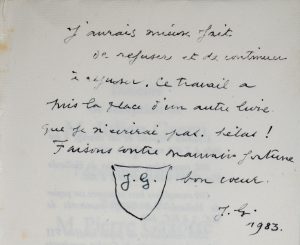 J'aurais mieux fait
de refuser et de continuer
à refuser. Ce travail a
pris la place d'un autre livre
que je n'écrirai pas. hélas !
Faisons contre mauvaise fortune
J.G. bon coeur.
J.G.
1983.